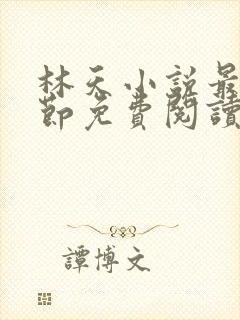 林天小說最
節免費閱讀
譚博文